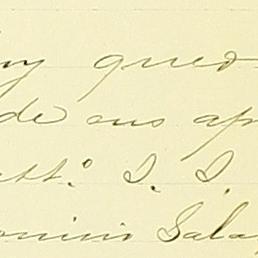 oy qued
de sus ap
att.º S. S.
onino Sala